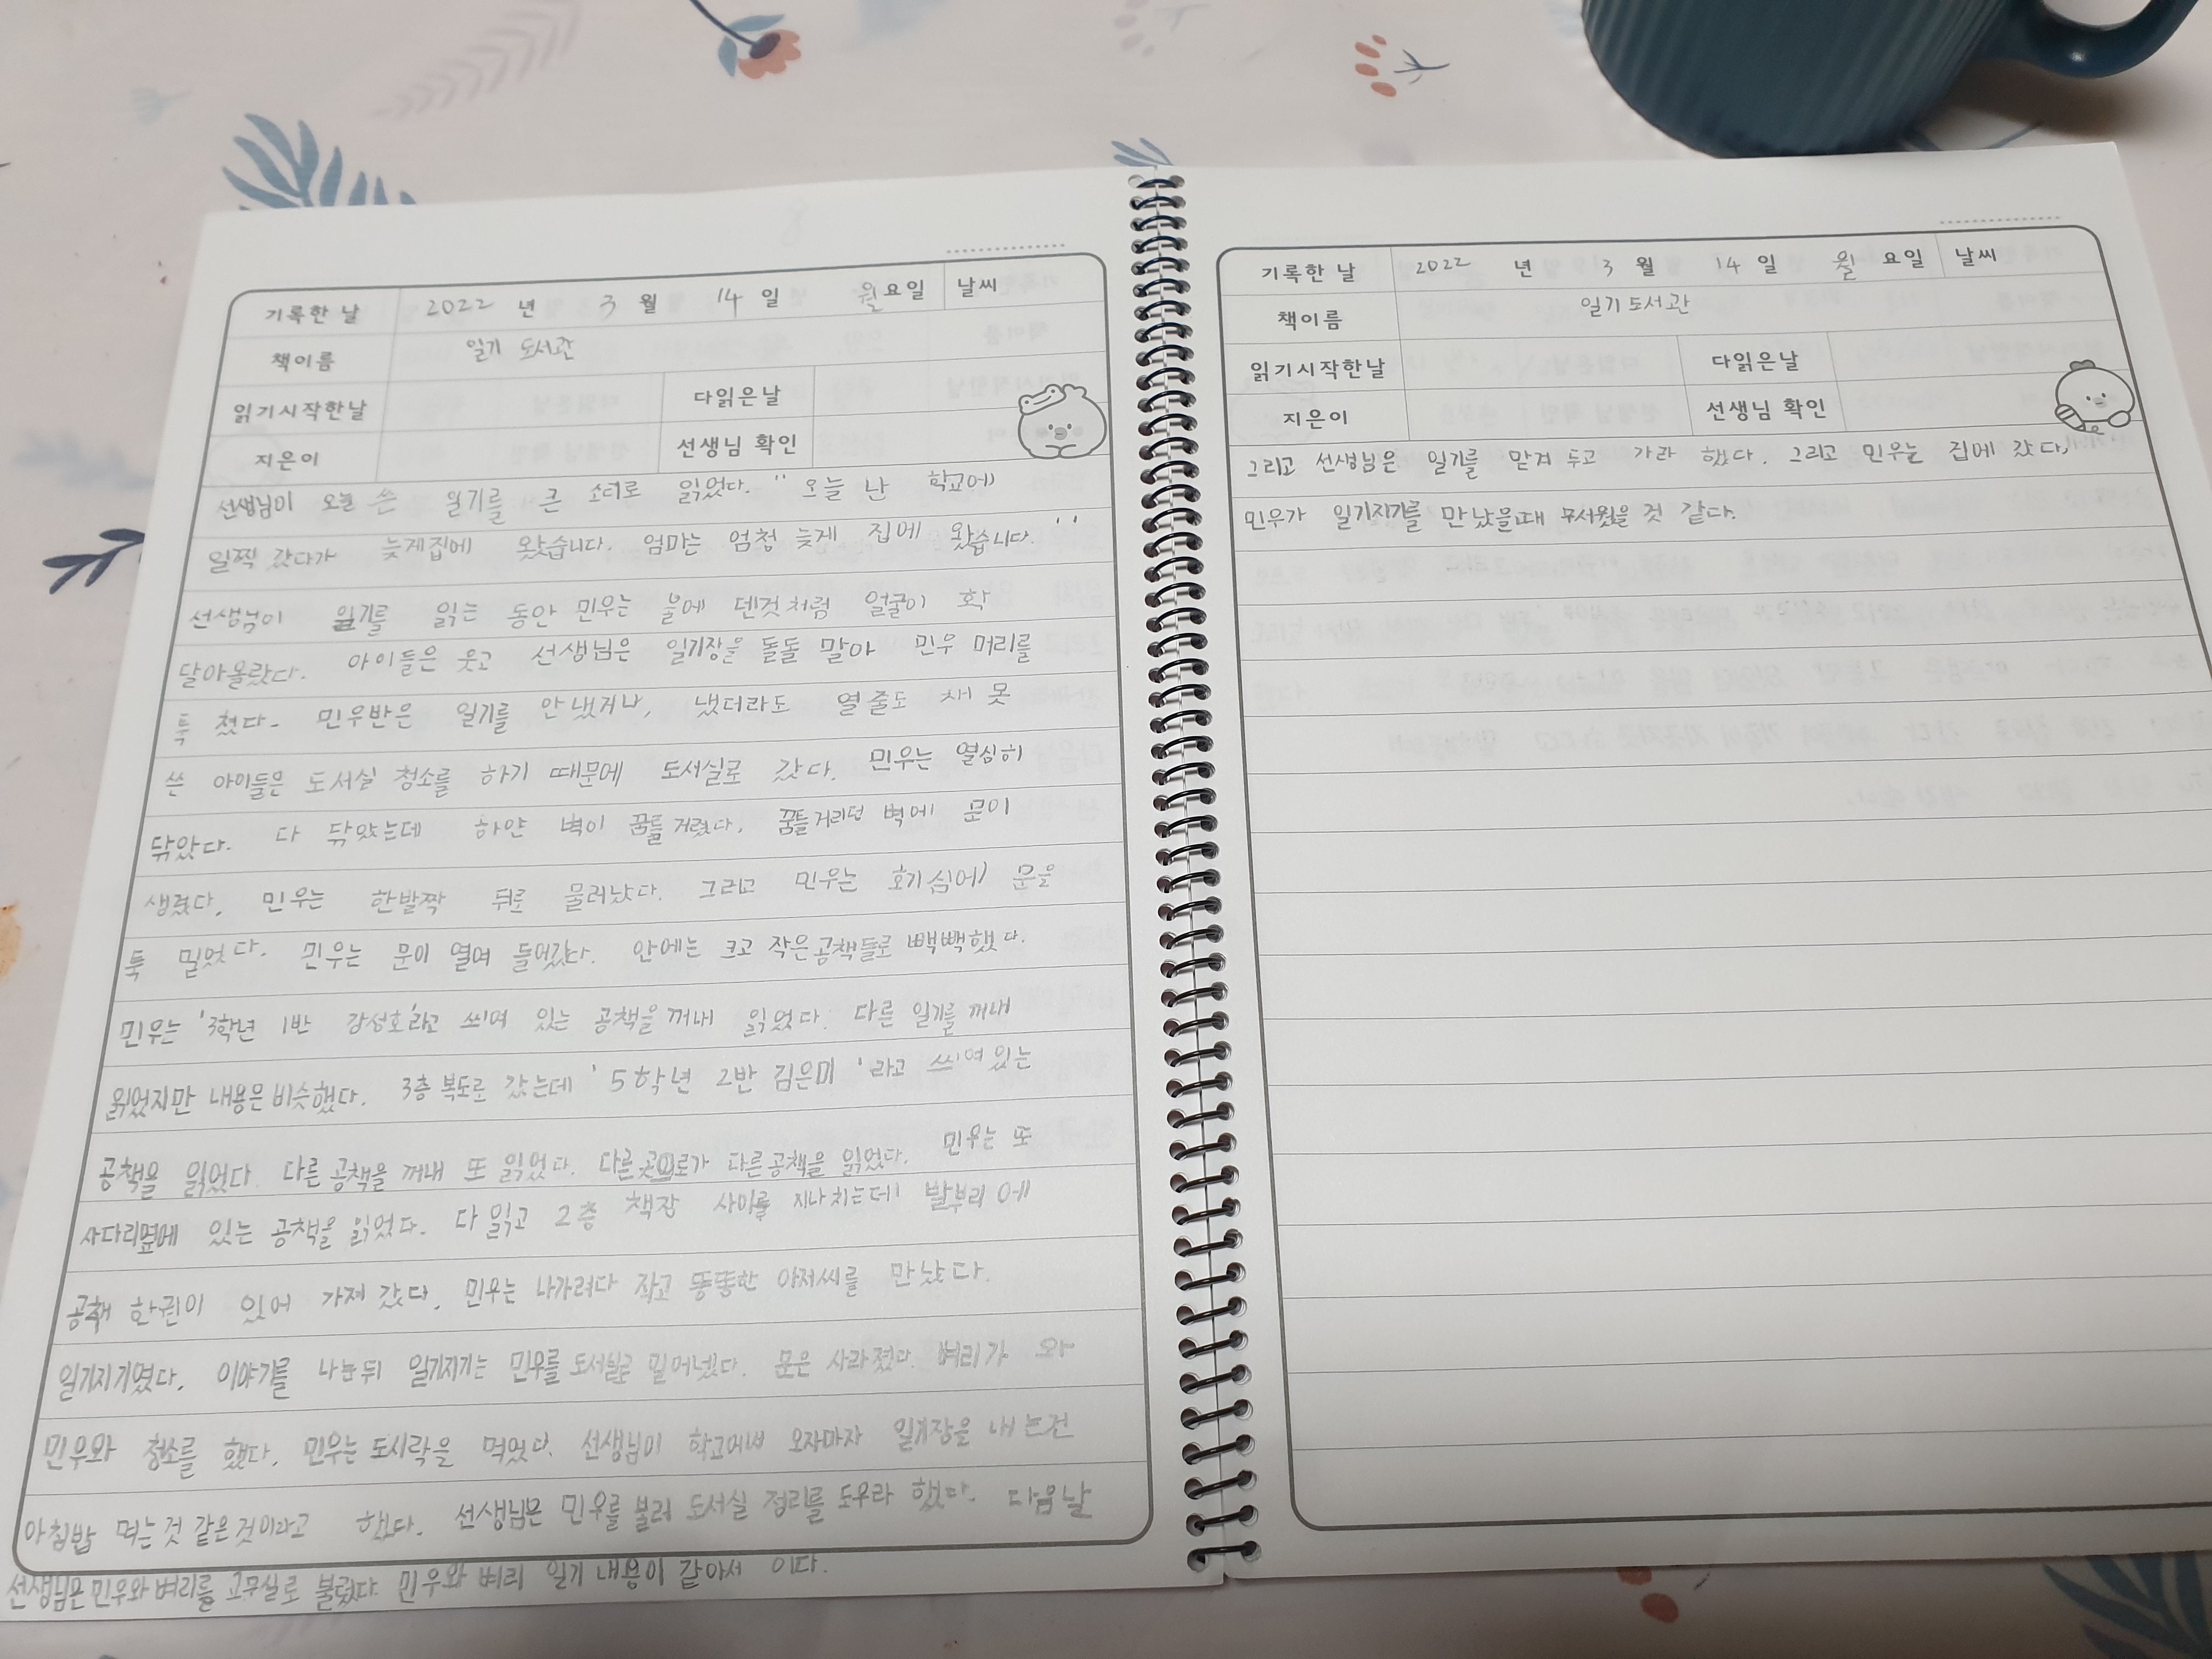 기록한 날 2022 년 3 월 14 일 월요일 날씨
책이름 일기 도서관
읽기시작한날 다읽은날
지은이 선생님 확인
선생님이 오늘 쓴 일기를 큰 소리로 읽었다. "오늘 난 학교에
일찍 갔다가 늦게집에 왔습니다. 엄마는 엄청 늦게 집에 왔습니다."
선생님이 일기를 읽는 동안 민우는 불에 덴것처럼 얼굴이 확
달아올랐다. 아이들은 웃고 선생님은 일기장을 돌돌 말아 민우 머리를
톡 쳤다. 민우반은 일기를 안 냈거나, 냈더라도 열줄도 채 못
쓴 아이들은 도서실 청소를 하기 때문에 도서실로 갔다. 민우는 열심히
닦았다. 다 닦았는데 하얀 벽이 꿈틀거렸다. 꿈틀거리던 벽에 문이
생겼다. 민우는 한발짝 뒤로 물러났다. 그리고 민우는 호기심에 문을
툭 밀었다. 민우는 문이 열려 들어갔다. 안에는 크고 작은공책들로 빽빽했다.
민우는 '1학년 1반 강성호'라고 쓰여 있는 공책을 꺼내 읽었다. 다른 일기를 꺼내
읽었지만 내용은 비슷했다. 3층 복도로 갔는데 '5학년 2반 김은미'라고 쓰여 있는
공책을 읽었다. 다른 공책을 꺼내 또 읽었다. 다른 공책을 읽었다. 민우는 또
사다리옆에 있는 공책을 읽었다. 다 읽고 2층 책장 사이를 지나치는데 발부리에
공책 한권이 있어 가져 갔다. 민우는 내려가다 작고 뚱뚱한 아저씨를 만났다.
일기지기였다. 이야기를 나눈뒤 일기지기는 민우를 도서실로 밀어넣었다. 문은 사라졌다. 벼리가 와
민우와 청소를 했다. 민우는 도시락을 먹었다. 선생님이 학교에서 오자마자 일기장을 내 보던
아침밥 먹는 것 같은 것이라고 했다. 선생님은 민우를 불러 도서실 정리를 도우라 했다. 다음날
선생님은 민우와 벼리를 교무실로 불렀다. 민우와 벼리 일기 내용이 같아서 이다.
기록한 날 2022 년 3 월 14 일 월요일 날씨
책이름 일기 도서관
읽기시작한날 다읽은날
지은이 선생님 확인
그리고 선생님은 일기를 맡겨 두고 가라 했다. 그리고 민우는 집에 갔다.
민우가 일기지기를 만났을때 무서웠을 것 같다.